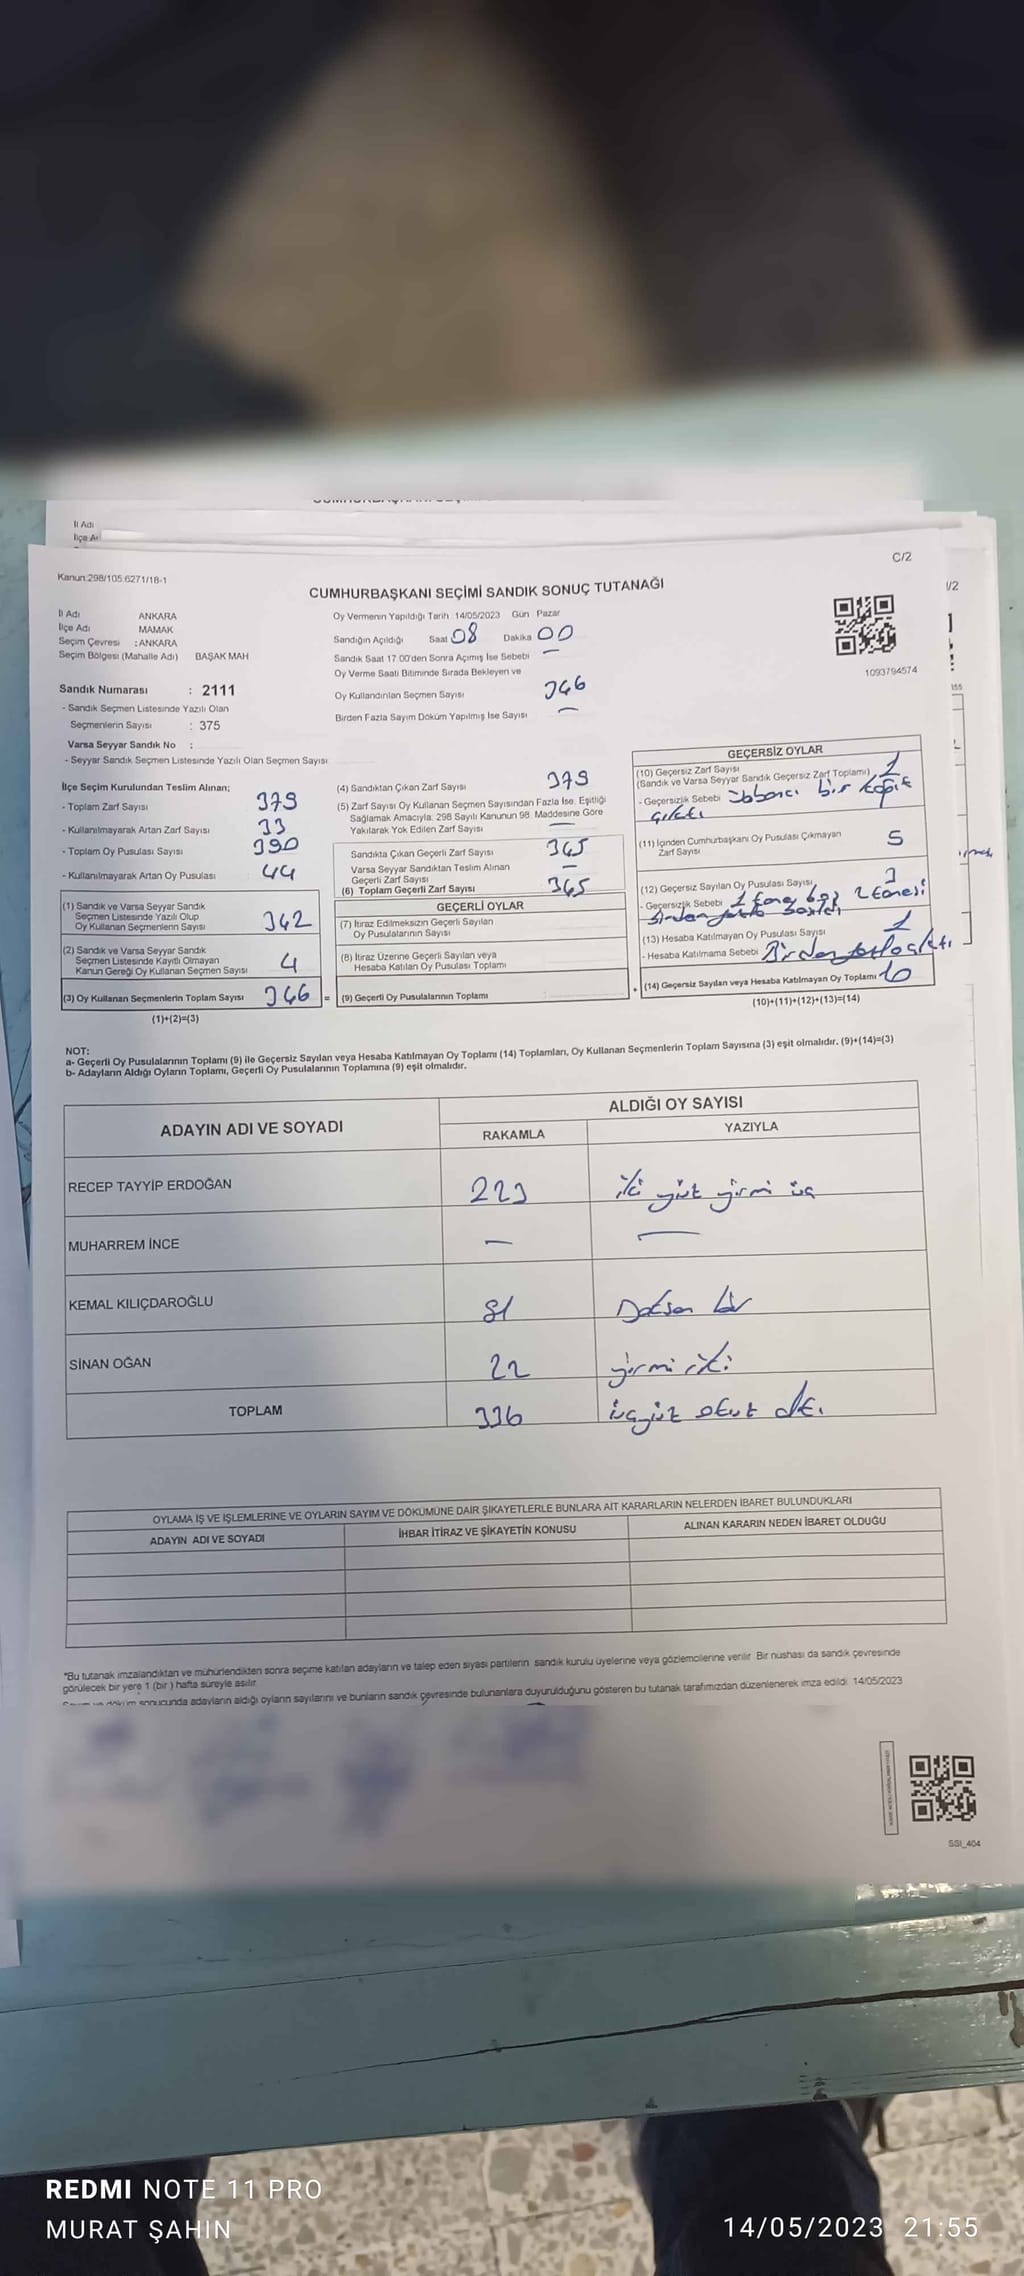 İl Adı
C/2
Kanun:298/105.6271/18-1
CUMHURBAŞKANI SEÇİMİ SANDIK SONUÇ TUTANAĞI
İl Adı ANKARA
İlçe Adı MAMAK
Seçim Çevresi : ANKARA
Seçim Bölgesi (Mahalle Adı) BAŞAK MAH
Sandık Numarası : 2111
- Sandık Seçmen Listesinde Yazılı Olan
Seçmenlerin Sayısı : 375
Varsa Seyyar Sandık No :
- Seyyar Sandık Seçmen Listesinde Yazılı Olan Seçmen Sayısı
Oy Vermenin Yapıldığı Tarih 14/05/2023 Gün Pazar
Sandığın Açıldığı Saat 08 Dakika 00
Sandık Saat 17.00'den Sonra Açımış İse Sebebi —
Oy Verme Saati Bitiminde Sırada Bekleyen ve
Oy Kullandırılan Seçmen Sayısı 346
Birden Fazla Sayım Döküm Yapılmış İse Sayısı —
1093794574
İlçe Seçim Kurulundan Teslim Alınan;
- Toplam Zarf Sayısı 379
- Kullanılmayarak Artan Zarf Sayısı 33
- Toplam Oy Pusulası Sayısı 390
- Kullanılmayarak Artan Oy Pusulası 44
(1) Sandık ve Varsa Seyyar Sandık
Seçmen Listesinde Yazılı Olup
Oy Kullanan Seçmenlerin Sayısı 342
(2) Sandık ve Varsa Seyyar Sandık
Seçmen Listesinde Kayıtlı Olmayan
Kanun Gereği Oy Kullanan Seçmen Sayısı 4
(3) Oy Kullanan Seçmenlerin Toplam Sayısı 346 =
(1)+(2)=(3)
(4) Sandıktan Çıkan Zarf Sayısı 379
(5) Zarf Sayısı Oy Kullanan Seçmen Sayısından Fazla İse, Eşitliği
Sağlamak Amacıyla, 298 Sayılı Kanunun 98. Maddesine Göre
Yakılarak Yok Edilen Zarf Sayısı —
Sandıkta Çıkan Geçerli Zarf Sayısı 345
Varsa Seyyar Sandıktan Teslim Alınan
Geçerli Zarf Sayısı —
(6) Toplam Geçerli Zarf Sayısı 345
GEÇERLİ OYLAR
(7) İtiraz Edilmeksizin Geçerli Sayılan
Oy Pusulalarının Sayısı
(8) İtiraz Üzerine Geçerli Sayılan veya
Hesaba Katılan Oy Pusulası Toplamı
(9) Geçerli Oy Pusulalarının Toplamı +
GEÇERSİZ OYLAR
(10) Geçersiz Zarf Sayısı 1
(Sandık ve Varsa Seyyar Sandık Geçersiz Zarf Toplamı)
- Geçersizlik Sebebi bir
çıktı
(11) İçinden Cumhurbaşkanı Oy Pusulası Çıkmayan
Zarf Sayısı 5
(12) Geçersiz Sayılan Oy Pusulası Sayısı 3
- Geçersizlik Sebebi 1 tane boş 2 tanesi
birden fazla basıldı
(13) Hesaba Katılmayan Oy Pusulası Sayısı 1
- Hesaba Katılmama Sebebi Birden fazla çıktı
(14) Geçersiz Sayılan veya Hesaba Katılmayan Oy Toplamı 10
(10)+(11)+(12)+(13)=(14)
NOT:
a- Geçerli Oy Pusulalarının Toplamı (9) ile Geçersiz Sayılan veya Hesaba Katılmayan Oy Toplamı (14) Toplamları, Oy Kullanan Seçmenlerin Toplam Sayısına (3) eşit olmalıdır. (9)+(14)=(3)
b- Adayların Aldığı Oyların Toplamı, Geçerli Oy Pusulalarının Toplamına (9) eşit olmalıdır.
ADAYIN ADI VE SOYADI ALDIĞI OY SAYISI
RAKAMLA YAZIYLA
RECEP TAYYİP ERDOĞAN 223 iki yüz yirmi üç
MUHARREM İNCE — —
KEMAL KILIÇDAROĞLU 91 Doksan bir
SİNAN OĞAN 22 yirmi iki
TOPLAM 336 üçyüz otuz altı
OYLAMA İŞ VE İŞLEMLERİNE VE OYLARIN SAYIM VE DÖKÜMÜNE DAİR ŞİKAYETLERLE BUNLARA AİT KARARLARIN NELERDEN İBARET BULUNDUKLARI
ADAYIN ADI VE SOYADI İHBAR İTİRAZ VE ŞİKAYETİN KONUSU ALINAN KARARIN NEDEN İBARET OLDUĞU
*Bu tutanak imzalandıktan ve mühürlendikten sonra seçime katılan adayların ve talep eden siyasi partilerin sandık kurulu üyelerine veya gözlemcilerine verilir. Bir nüshası da sandık çevresinde
görülecek bir yere 1 (bir) hafta süreyle asılır.
Sayım ve döküm sonucunda adayların aldığı oyların sayılarını ve bunların sandık çevresinde bulunanlara duyurulduğunu gösteren bu tutanak tarafımızdan düzenlenerek imza edildi. 14/05/2023
SSI_404
REDMI NOTE 11 PRO
MURAT ŞAHIN
14/05/2023 21:55